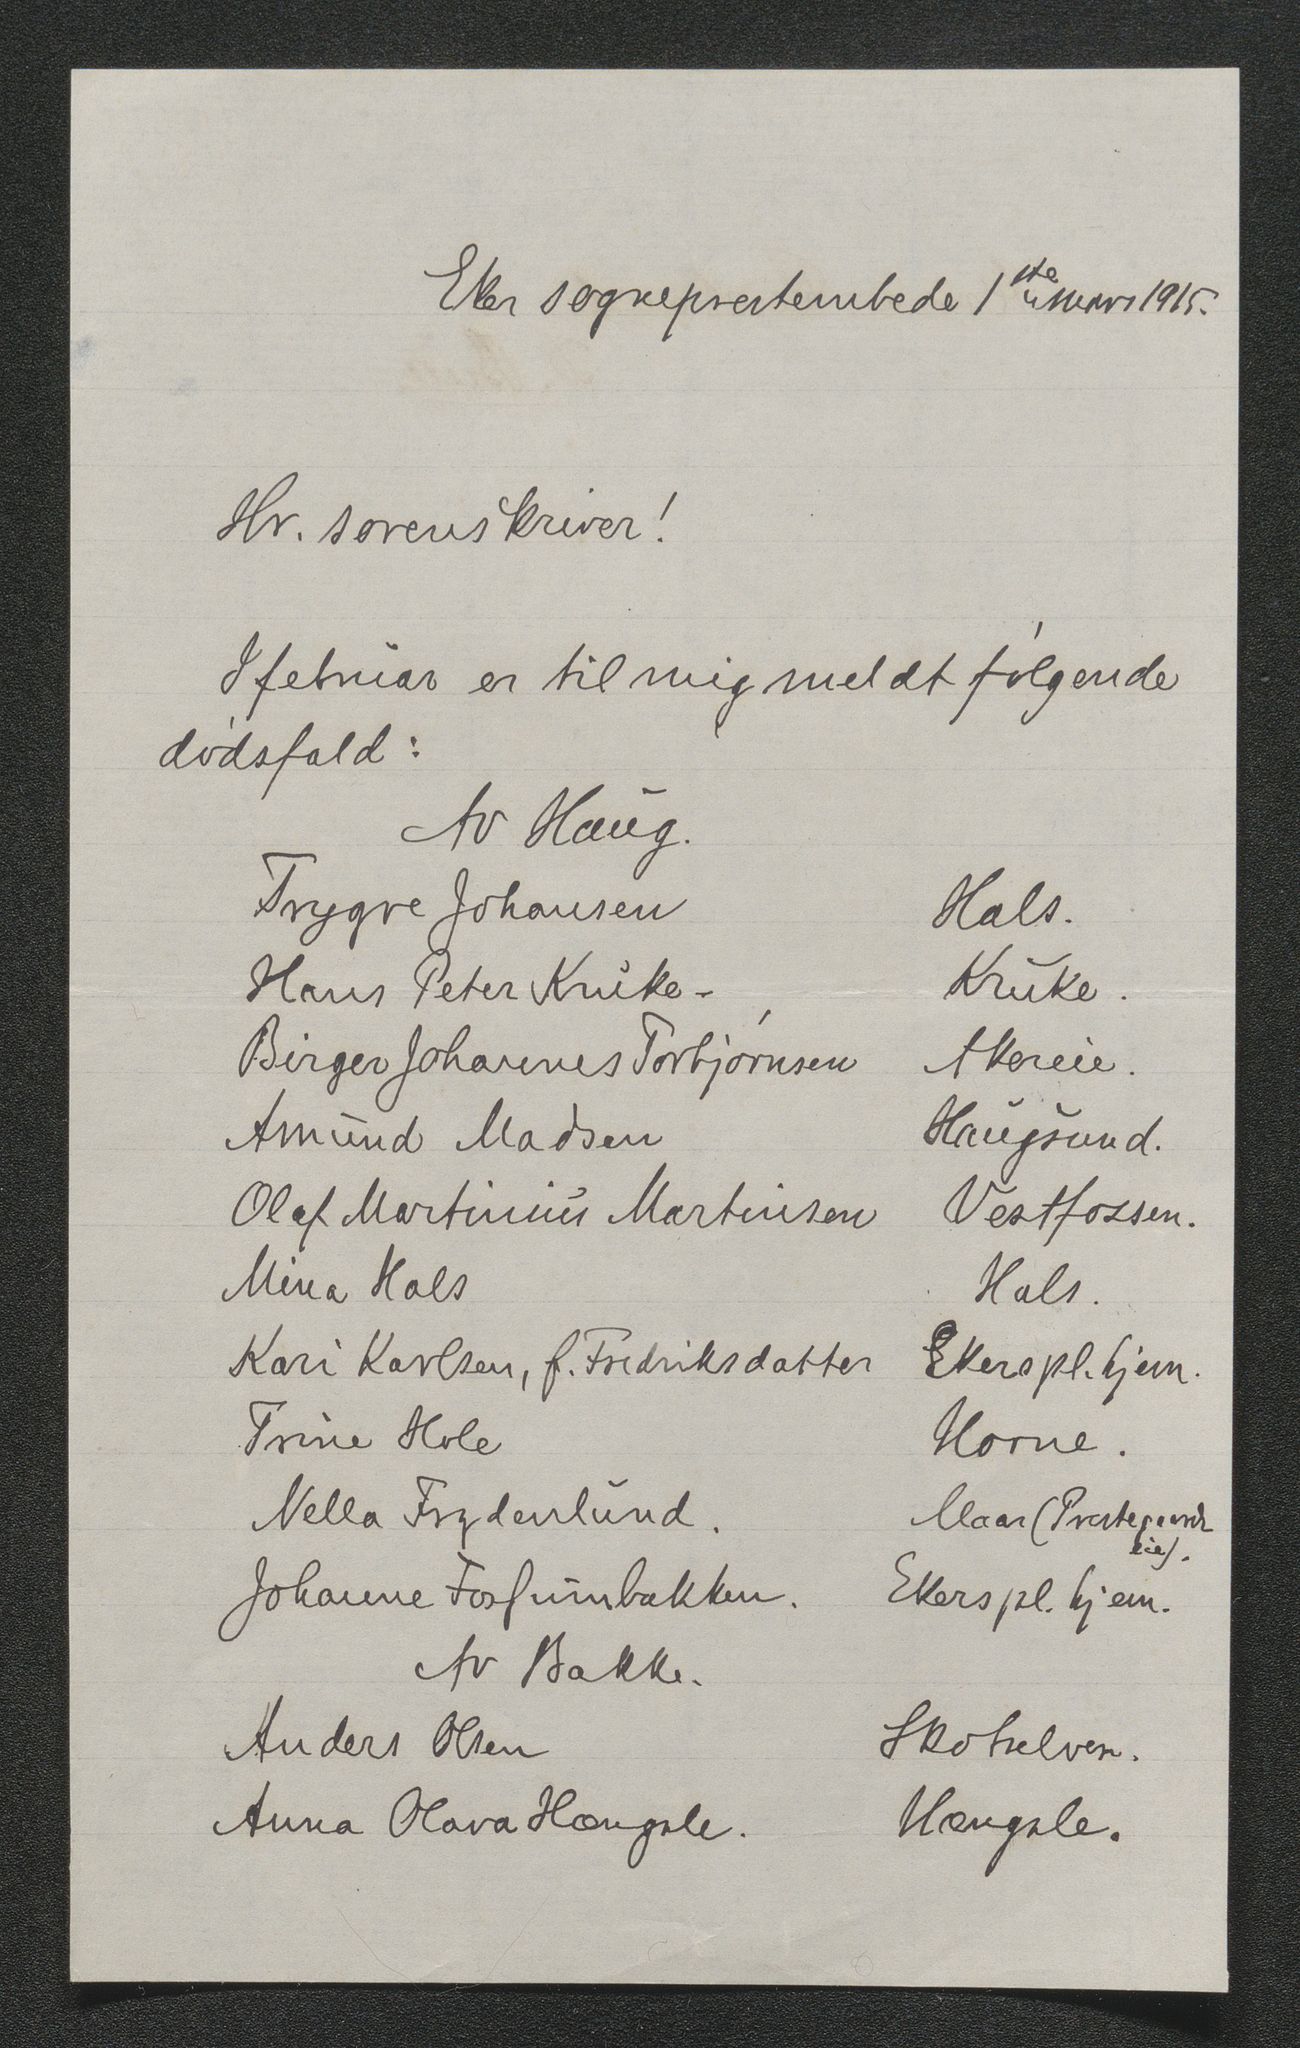 Eker sogneprestembede 1ste mars 1915.
Hr. sorenskriver!
I februar er til mig meldt følgende
dødsfald:
Av Haug.
Trygve Johansen Hals.
Hans Peter Kruke - Kruke.
Birger Johannes Torbjørnsen Akereie.
Amund Madsen Haugsund.
Olaf Martinius Martinsen Vestfossen.
Mina Hals Hals.
Kari Karlsen, f. Fredriksdatter Ekers pl. hjem.
Trine Hole Horne.
Nella Frydenlund. Maar (Prestegaards
eie).
Johanne Fosfumbakken. Ekers pl. hjem.
Av Bakke.
Anders Olsen Skotselven.
Anna Olava Hængsle. Hængsle.